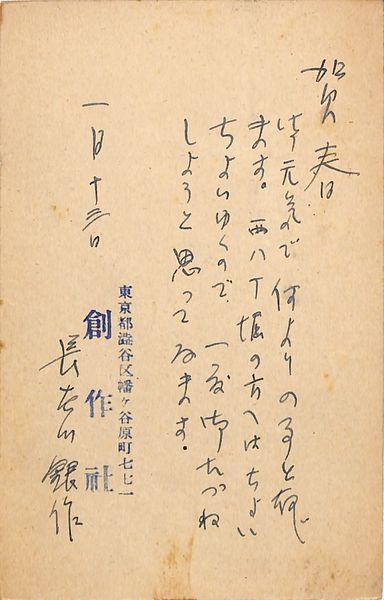 賀春
御元気で何よりの事と存じ
ます。西八丁堀の方へはちよい
ちよいゆくので、一度御たづね
しようと思つてゐます。
一月十三日
東京都澁谷区幡ヶ谷原町七七一
創作社
長谷川銀作